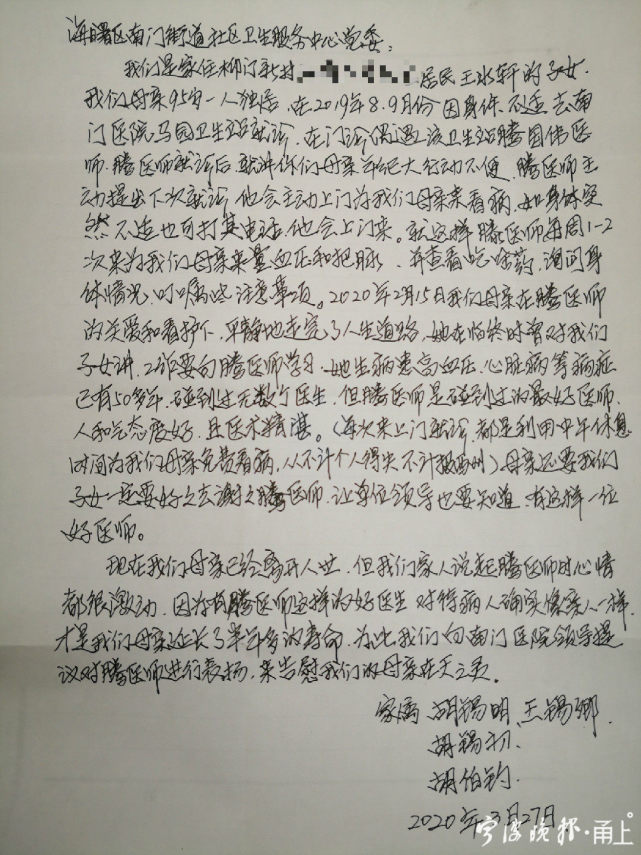 海曙区南门街道社区卫生服务中心党委:
我们是家住柳汀新村 居民王水轩的子女.
我们母亲95岁一人独居,在2019年8.9月份因身体不适去南
门医院马园卫生站就诊,在门诊偶遇上该卫生站腾国伟医
师.腾医师就诊后,就讲你们母亲年纪大行动不便,腾医师主
动提出下次就诊他会主动上门为我们母亲来看病,如身体突
然不适也可打其电话,他会上门来。就这样腾医师每周1-2
次来为我们母亲来量血压和把脉、并查看吃啥药,询问身
体情况,叮嘱些注意事项。2020年2月15日我们母亲在腾医师
的关爱和看护下,平静地走完了人生道路,她在临终时曾对我们
子女讲,工作要向腾医师学习.她生病患高血压、心脏病等病症
已有50多年,碰到过无数个医生,但腾医师是碰到过的最好医师,
人和气态度好,且医术精湛。(每次来上门就诊,都是利用中午休息
时间为我们母亲免费看病,从不计个人得失不计报酬)母亲还要我们
子女一定要好之去谢之腾医师,让单位领导也要知道,有这样一位
好医师。
现在我们母亲已经离开人世,但我们家人说起腾医师时心情
都很激动,因为有腾医师这样的好医生对待病人确实像亲人一样,
才是我们母亲延长了半年多的寿命,为此我们向南门医院领导提
议对腾医师进行表扬,来告慰我们的母亲在天之灵。
家属 胡锡明、王锡卿、
胡锡初、
胡伯钧
2020年3月27日
宁波晚报·甬上